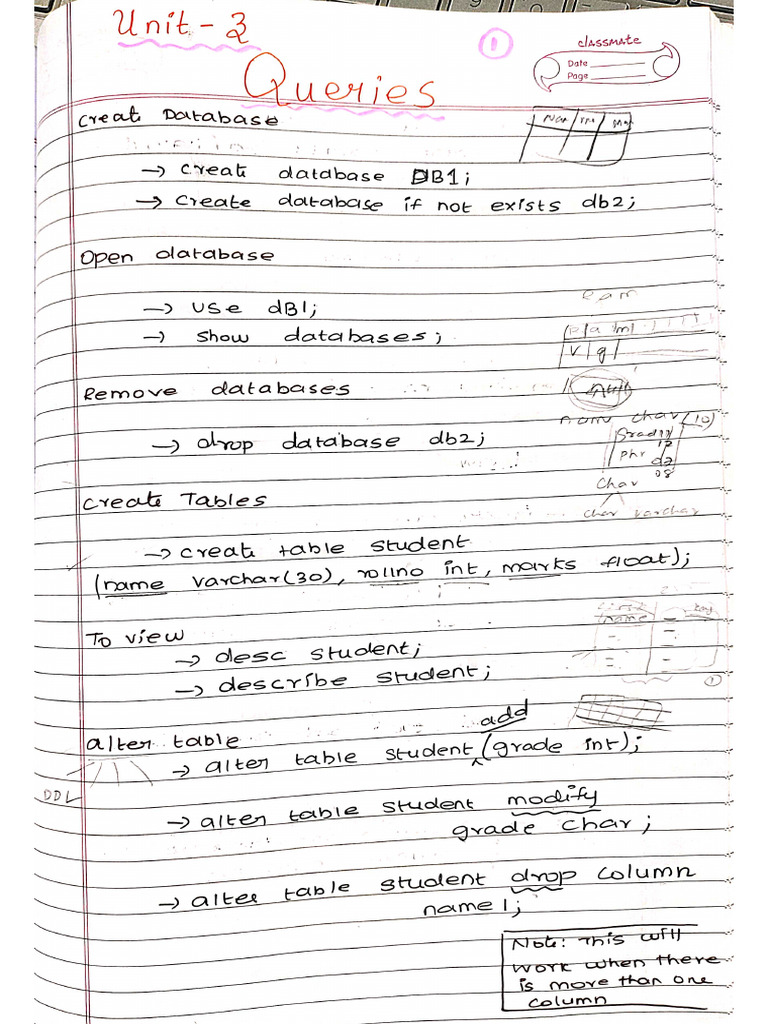 Unit - 3
1
classmate
Date
Page
Queries
Creat Database
→ Create database DB1;
→ Create database if not exists db2;
Open database
→ use dB1;
→ show databases;
Remove databases
→ drop database db2;
char (10)
char
char varchar
Create Tables
→ create table student
(name varchar(30), rollno int, marks float);
To view
→ desc student;
→ describe student;
name
1
add
alter table
→ alter table student ^ (grade int);
DDL
→ alter table student modify
grade char;
→ alter table student drop column
name1;
Note: This will
work when there
is more than one
column